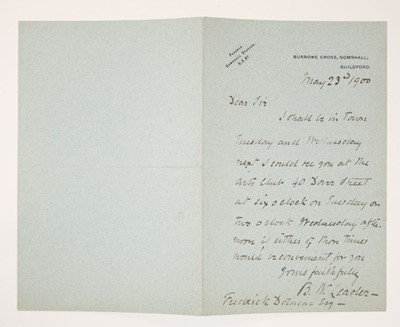 PARCELS
GOMSHALL STATION,
S.E.RY.
BURROWS CROSS, GOMSHALL,
GUILDFORD.
May 23rd/1900
Dear Sir
I shall be in Town
Tuesday and Wednesday
next I could see you at the
Arts Club 40 Dover Street
at six o'clock on Tuesday or
two o'clock Wednesday after-
noon if either of those times
would be convenient for you
yours faithfully
B. W. Leader
Fredrick Esq